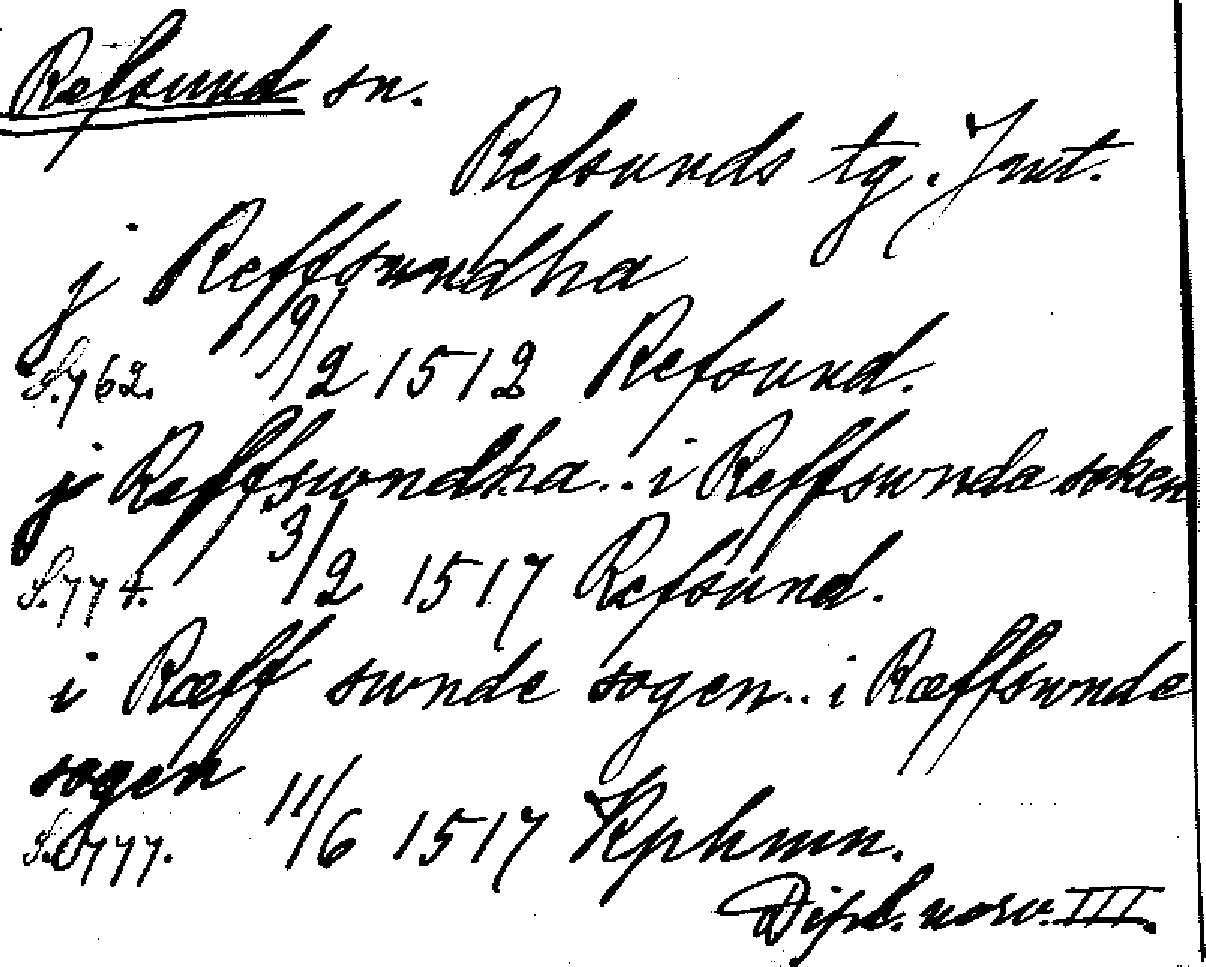 Refsund sn.
Refsunds tg. Jmt.
j Reffsundha
S. 762. 19/2 1512 Refsund.
j Reffswndha .. i Reffswnda soken
S. 774. 3/2 1517 Refsund.
i Ræff swnde sogen .. i Ræffswnde
sogen
S. 777. 11/6 1517 Kphmn.
Dipl. norv. III.